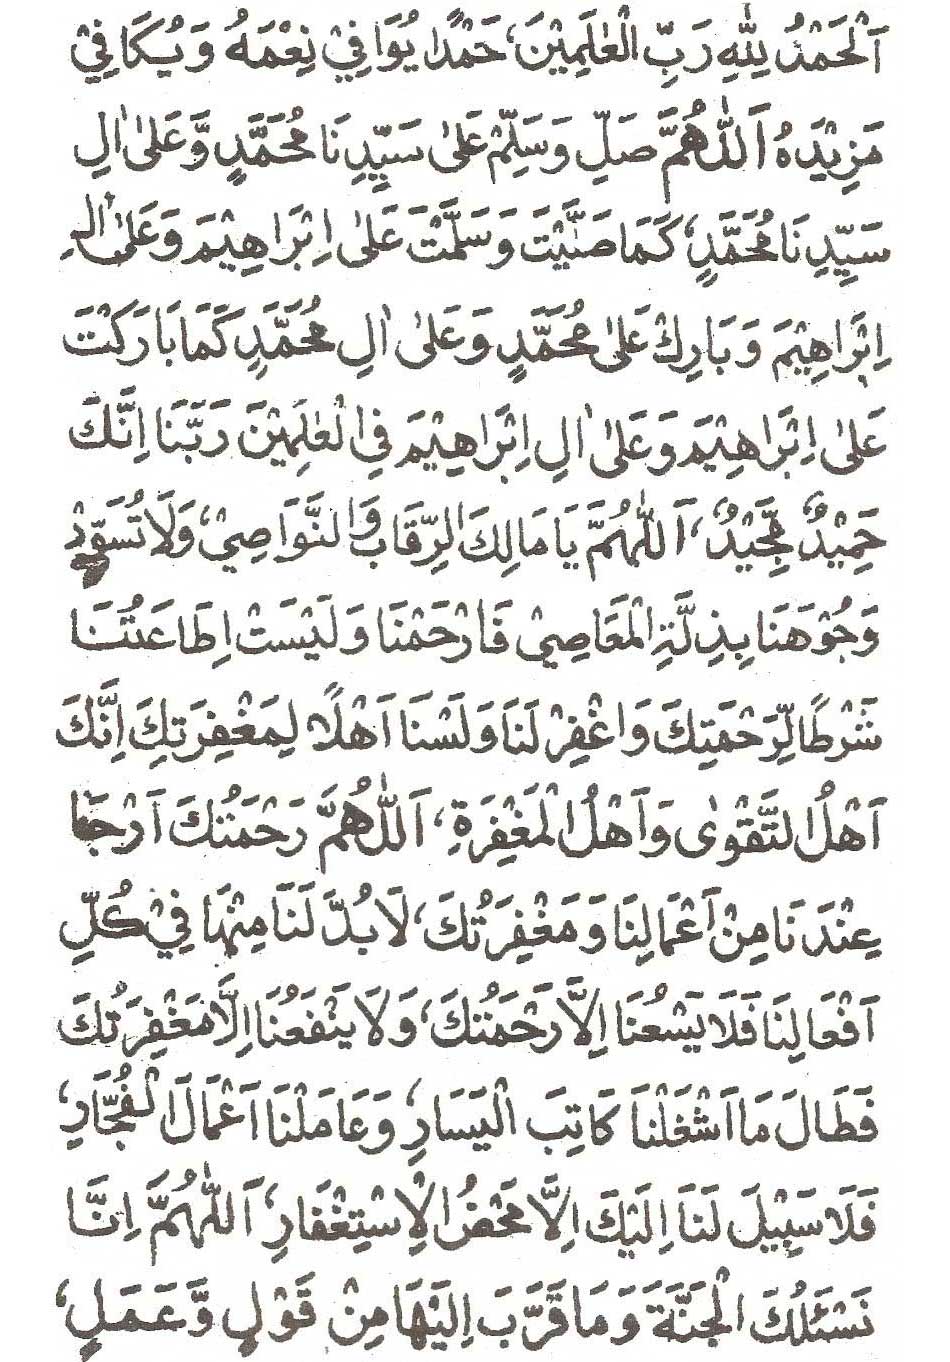 اَلْحَمْدُ لِلّٰهِ رَبِّ الْعٰلَمِيْنَ، حَمْدًا يُوَافِيْ نِعْمَهُ وَيُكَافِيْ
مَزِيْدَهُ اَللّٰهُمَّ صَلِّ وَسَلِّمْ عَلىٰ سَيِّدِنَا مُحَمَّدٍ وَّعَلىٰ اٰلِ
سَيِّدِنَا مُحَمَّدٍ، كَمَا صَلَّيْتَ وَسَلَّمْتَ عَلىٰ اِبْرَاهِيْمَ وَعَلىٰ اٰلِ
اِبْرَاهِيْمَ وَبَارِكْ عَلىٰ مُحَمَّدٍ وَعَلىٰ اٰلِ مُحَمَّدٍ كَمَا بَارَكْتَ
عَلىٰ اِبْرَاهِيْمَ وَعَلىٰ اٰلِ اِبْرَاهِيْمَ فِى الْعٰلَمِيْنَ رَبَّنَا اِنَّكَ
حَمِيْدٌ مَّجِيْدٌ، اَللّٰهُمَّ يَا مَالِكَ الرِّقَابِ وَالنَّوَاصِيْ، وَلَا تُسَوِّدْ
وَجُوْهَنَا بِذِلَّةِ الْمَعَاصِيْ فَارْحَمْنَا وَلَيْسَتْ اِطَاعَتُنَا
شَرْطًا لِّرَحْمَتِكَ وَاغْفِرْ لَنَا وَلَسْنَا اَهْلًا لِمَغْفِرَتِكَ اِنَّكَ
اَهْلُ التَّقْوٰى وَاَهْلُ الْمَغْفِرَةِ، اَللّٰهُمَّ رَحْمَتُكَ اَرْجَا
عِنْدَنَا مِنْ اَعْمَالِنَا وَمَغْفِرَتُكَ، لَا بُدَّ لَنَا مِنْهَا فِيْ كُلِّ
اَفْعَالِنَا فَلَا يَسْعُنَا اِلَّا رَحْمَتُكَ، وَلَا يَنْفَعُنَا اِلَّا مَغْفِرَتُكَ
فَطَالَ مَا اَشْغَلْنَا كَاتِبَ الْيَسَارِ، وَعَامَلْنَا اَعْمَالَ الْفُجَّارِ،
فَلَا سَبِيْلَ لَنَا اِلَيْكَ اِلَّا مَحْضُ الْاِسْتِغْفَارِ، اَللّٰهُمَّ اِنَّا
نَسْئَلُكَ الْجَنَّةَ وَمَا قَرَّبَ اِلَيْهَا مِنْ قَوْلٍ وَّعَمَلٍ،